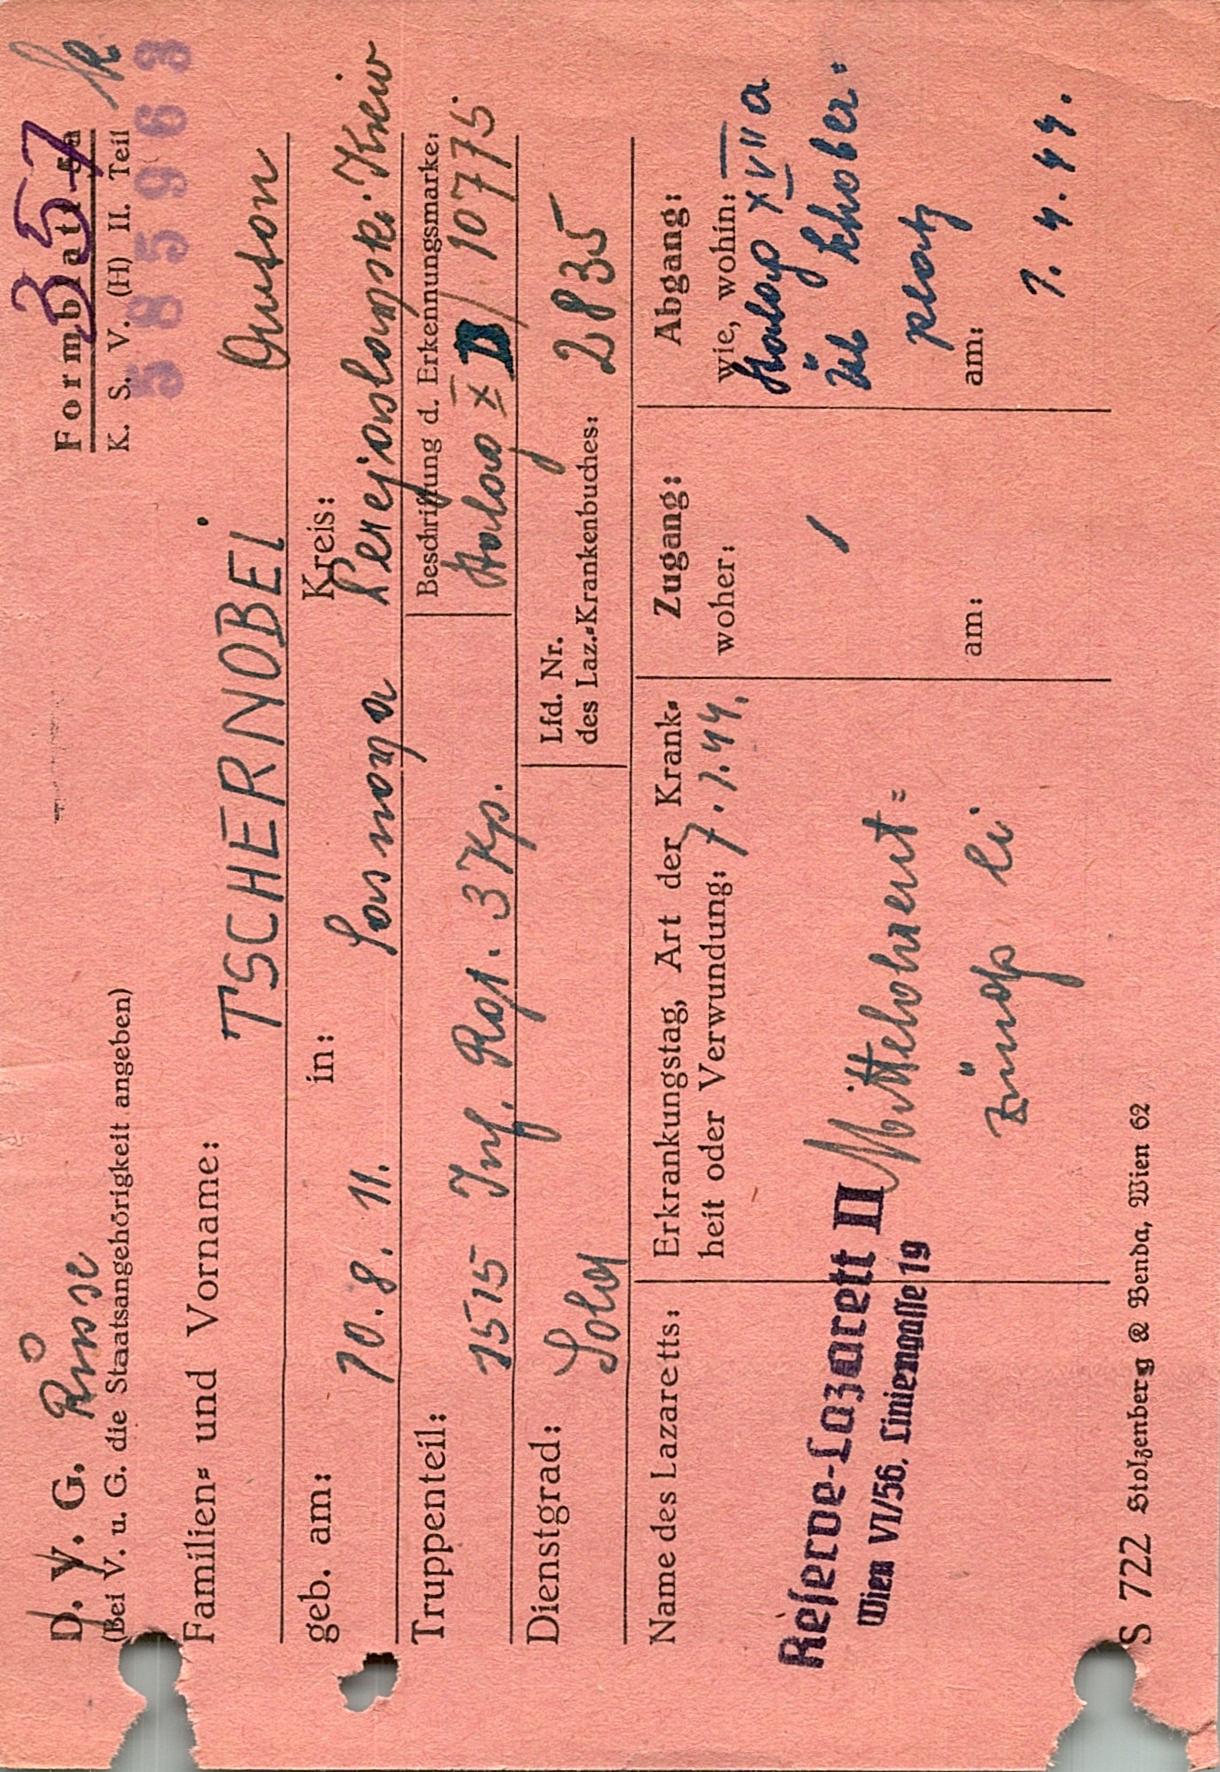 D. V. G. Russe
Formblatt 5a 357 /R
(Bei V. u. G. die Staatsangehörigkeit angeben)
K. S. V. (H) II. Teil
585963
Familien- und Vorname:
TSCHERNOBEL Anton
geb. am: 10.8.11. in: Sosnowa Kreis: Perejaslawski. Kiew
Truppenteil: 1515 Inf. Rgt. 3 Kp.
Beschriftung d. Erkennungsmarke:
Stalag X D / 10775.
Dienstgrad: Sold
Lfd. Nr.
des Laz.-Krankenbuches: 2835
Name des Lazaretts:
Reserve-Lazarett II
Wien VI/56, Liniengasse 19
Erkrankungstag, Art der Krank-
heit oder Verwundung: 7.1.44.
Mittelohrent=
zündg li
Zugang:
woher:
/
am:
Abgang:
wie, wohin:
Stalag XVII a
am: 7.4.44.
S 722 Stolzenberg & Benda, Wien 62